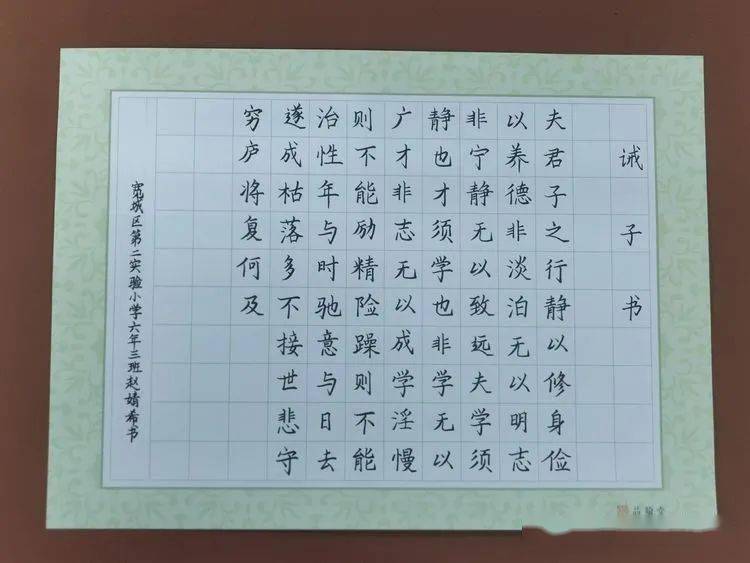 诫子书
夫君子之行静以修身俭
以养德非淡泊无以明志
非宁静无以致远夫学须
静也才须学也非学无以
广才非志无以成学淫慢
则不能励精险躁则不能
治性年与时驰意与日去
遂成枯落多不接世悲守
穷庐将复何及
宽城区第二实验小学六年三班赵婧希书